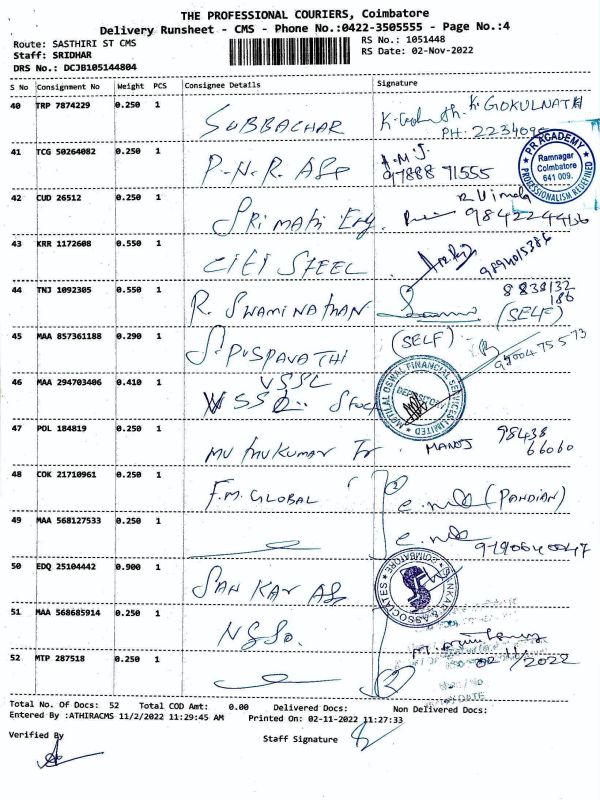 THE PROFESSIONAL COURIERS, Coimbatore
Delivery Runsheet - CMS - Phone No.:0422-3505555 - Page No.:4
Route: SASTHIRI ST CMS RS No.: 1051448
Staff: SRIDHAR RS Date: 02-Nov-2022
DRS No.: DCJB105144804
S No Consignment No Weight PCS Consignee Details Signature
40 TRP 7874229 0.250 1 SUBBACHAR K. GOKULNATH
PH: 223409
PR ACADEMY
Ramnagar
Coimbatore
641 009.
PROFESSIONALISM REDEFINED
41 TCG 50264082 0.250 1 P.N.R. ASS A.M.J.
97888 71555
42 CUD 26512 0.250 1 SRI MATHI R. Vimala
9842244166
43 KRR 1172608 0.550 1 CITI STEEL 9894015386
44 TNJ 1092305 0.550 1 R. SWAMINATHAN 8838132
186
(SELF)
45 MAA 857361188 0.290 1 S. PUSPAVATHI (SELF)
9500475573
46 MAA 294703406 0.410 1 VSSL
Stock
MOTILAL OSWAL FINANCIAL SERVICES LIMITED
DEPOSITORY
47 POL 184819 0.250 1 MUTHUKUMAR Tr MANOJ 98438
66060
48 COK 21710961 0.250 1 F.M. GLOBAL (PANDIAN)
49 MAA 568127533 0.250 1
50 EDQ 25104442 0.900 1 SANKAR ASS
SANKAR & ASSOCIATES
COIMBATORE
51 MAA 568685914 0.250 1
02/11/2022
52 MTP 287518 0.250 1
Total No. Of Docs: 52 Total COD Amt: 0.00 Delivered Docs: Non Delivered Docs:
Entered By :ATHIRACMS 11/2/2022 11:29:45 AM Printed On: 02-11-2022 11:27:33
Verified By Staff Signature